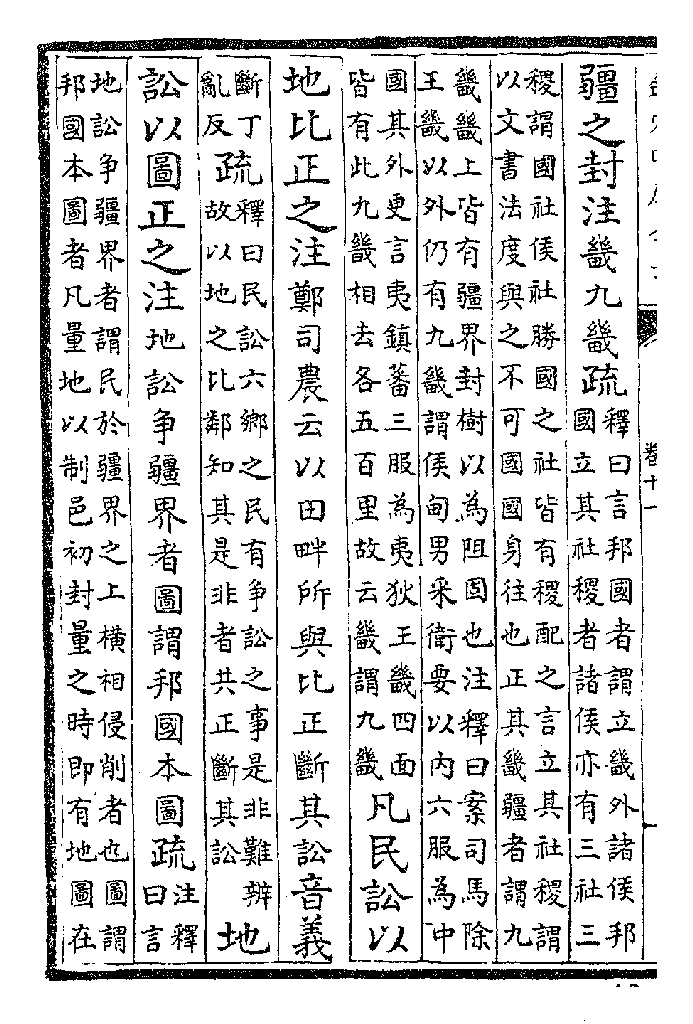 卷十一
疆之封注畿九畿疏
釋曰言邦國者謂立畿外諸侯邦
國立其社稷者諸侯亦有三社三
稷謂國社侯社勝國之社皆有稷配之言立其社稷謂
以文書法度與之不可國國身往也正其畿疆者謂九
畿畿上皆有疆界封樹以為阻固也注釋曰案司馬除
王畿以外仍有九畿謂侯甸男采衛要以内六服為中
國其外更言夷鎮蕃三服為夷狄王畿四面
皆有此九畿相去各五百里故云畿謂九畿
凡民訟以
地比正之注鄭司農云以田畔所與比正斷其訟音義
斷丁
亂反
疏
釋曰民訟六鄉之民有争訟之事是非難辨
故以地之比鄰知其是非者共正斷其訟
地
訟以圖正之注地訟争疆界者圖謂邦國本圖疏
注釋
曰言
地訟争疆界者謂民於疆界之上横相侵削者也圖謂
邦國本圖者凡量地以制邑初封量之時即有地圖在